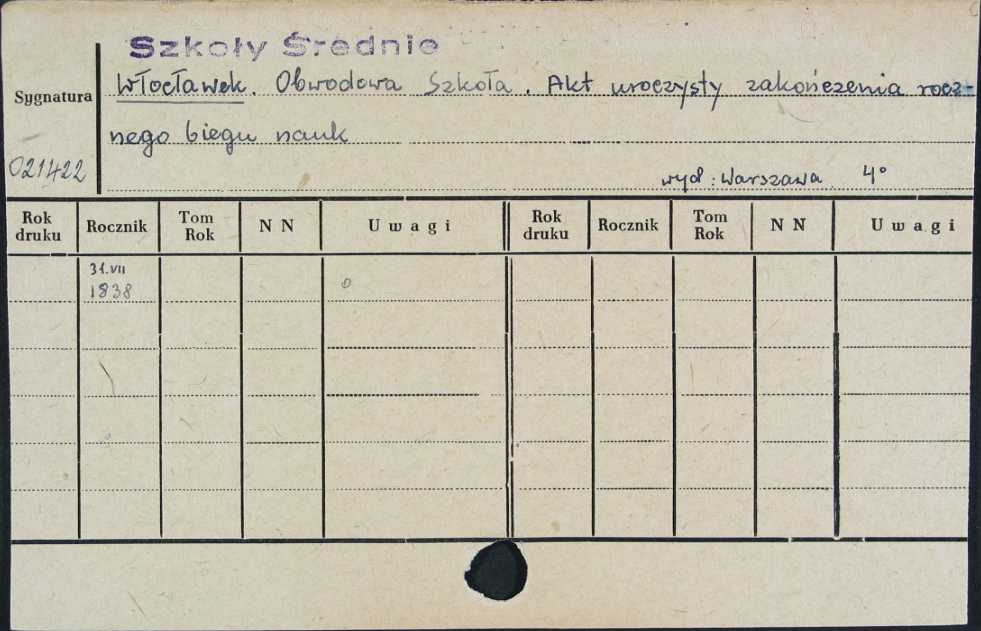 Szkoły Średnie
Sygnatura
Włocławek. Obwodowa Szkoła. Akt uroczysty zakończenia rocz-
nego biegu nauk
021422
wyd: Warszawa 4°
Rok druku Rocznik Tom Rok N N Uwagi Rok druku Rocznik Tom Rok N N Uwagi
31.VII
1838